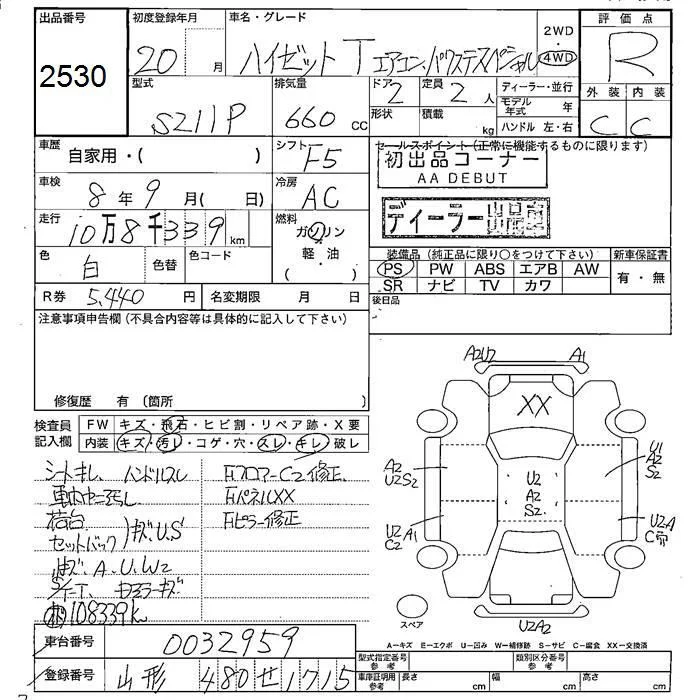 出品番号
2530
初度登録年月
20 月
車名・グレード
ハイゼット T エアコン、パワステスペシャル
2WD
・
4WD
評価点
R
外装 内装
C C
型式
S211P
排気量
660 cc
ドア
2
定員
2 人
形状
積載
kg
ディーラー・並行
モデル年式 年
ハンドル 左・右
車歴
自家用・( )
シフト
F5
セールスポイント(正常に機能するものに限ります)
初出品コーナー
AA DEBUT
ディーラー出品車
車検
8年 9月( 日)
冷房
AC
走行
10万8千339km
燃料
ガソリン
軽・油
( )
色
白
色替
色コード
装備品(純正品に限り○をつけて下さい)
新車保証書
PS PW ABS エアB AW
SR ナビ TV カワ
有・無
R券 5,440 円
名変期限 月 日
後日品
注意事項申告欄(不具合内容等は具体的に記入して下さい)
修復歴 有(箇所 )
検査員記入欄
FW キズ・飛石・ヒビ割・リペア跡・X要
内装 キズ・汚レ・コゲ・穴・スレ・キレ・破レ
シートキレ、ハンドルスレ
車内中汚レ
荷台
セットバック)キズ、U、S
キズ、A、U、W2
108339k
右フロアーC2修正、
右パネルXX
右ピラー修正
A2U2 A1
XX
A2
U2S2
U2
A2
S2
U1
A2
S2
U2 A1
C2
U2A
スペア
U2A2
A-キズ E-エクボ U-凹み W-補修跡 S-サビ C-腐食 XX-交換済
車台番号 0032959
登録番号 山形 480 せ 1715
型式指定番号 参考
類別区分番号 参考
車庫証明用 参考
長さ cm
幅 cm
高さ cm